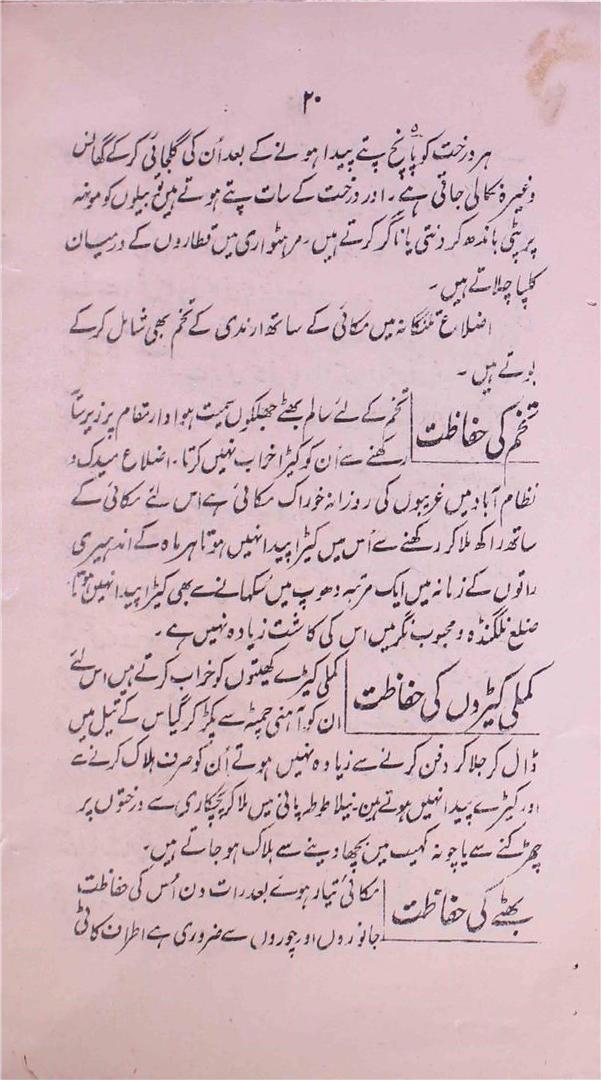 ۲۰
ہر درخت کو پانچ پتے پیدا ہونے کے بعد اُن کی گلچائی کرکے گھانس
وغیرہ نکالی جاتی ہے۔ اور درخت کے سات پتے ہوتے ہیں تو بیلوں کو مونھ
پر پٹی باندھ کر دنتی یا ناگر کرتے ہیں۔ مرہٹواری میں قطاروں کے درمیان
کلپا چلاتے ہیں۔
اضلاع تلنگانہ میں مکائی کے ساتھ ارنڈی کے تخم بھی شامل کرکے
بوتے ہیں۔
تخم کی حفاظت
تخم کے لئے سالم بھٹے چھلکوں سمیت ہوادار مقام پر زیر سا
رکھنے سے اُن کو کیڑا خراب نہیں کرتا۔ اضلاع میدک و
نظام آباد میں غریبوں کی روزانہ خوراک مکائی ہے اس لئے مکائی کے
ساتھ راکھ ملاکر رکھنے سے اُس میں کیڑا پیدا نہیں ہوتا ہر ماہ کے اندھیری
راتوں کے زمانہ میں ایک مرتبہ دھوپ میں سُکھانے سے بھی کیڑا پیدا نہیں ہوتا۔
ضلع نلگنڈہ و محبوب نگر میں اس کی کاشت زیادہ نہیں ہے۔
کملی کیڑوں کی حفاظت
کملی کیڑے کھیتوں کو خراب کرتے ہیں اس لئے
ان کو آہنی چمٹہ سے پکڑ کر گیاس کے تیل میں
ڈال کر جلاکر دفن کرنے سے زیادہ نہیں ہوتے اُن کو صرف ہلاک کرنے سے
اور کیڑے پیدا نہیں ہوتے ہین۔ نیلا طوطہ پانی میں ملاکر پچکاری سے درختوں پر
چھڑکنے سے یا چونہ کھیت میں بچھا دینے سے ہلاک ہو جاتے ہیں۔
بھٹے کی حفاظت
مکائی تیار ہوے بعد رات دن اُس کی حفاظت
جانوروں اور چوروں سے ضروری ہے اطراف کانٹی